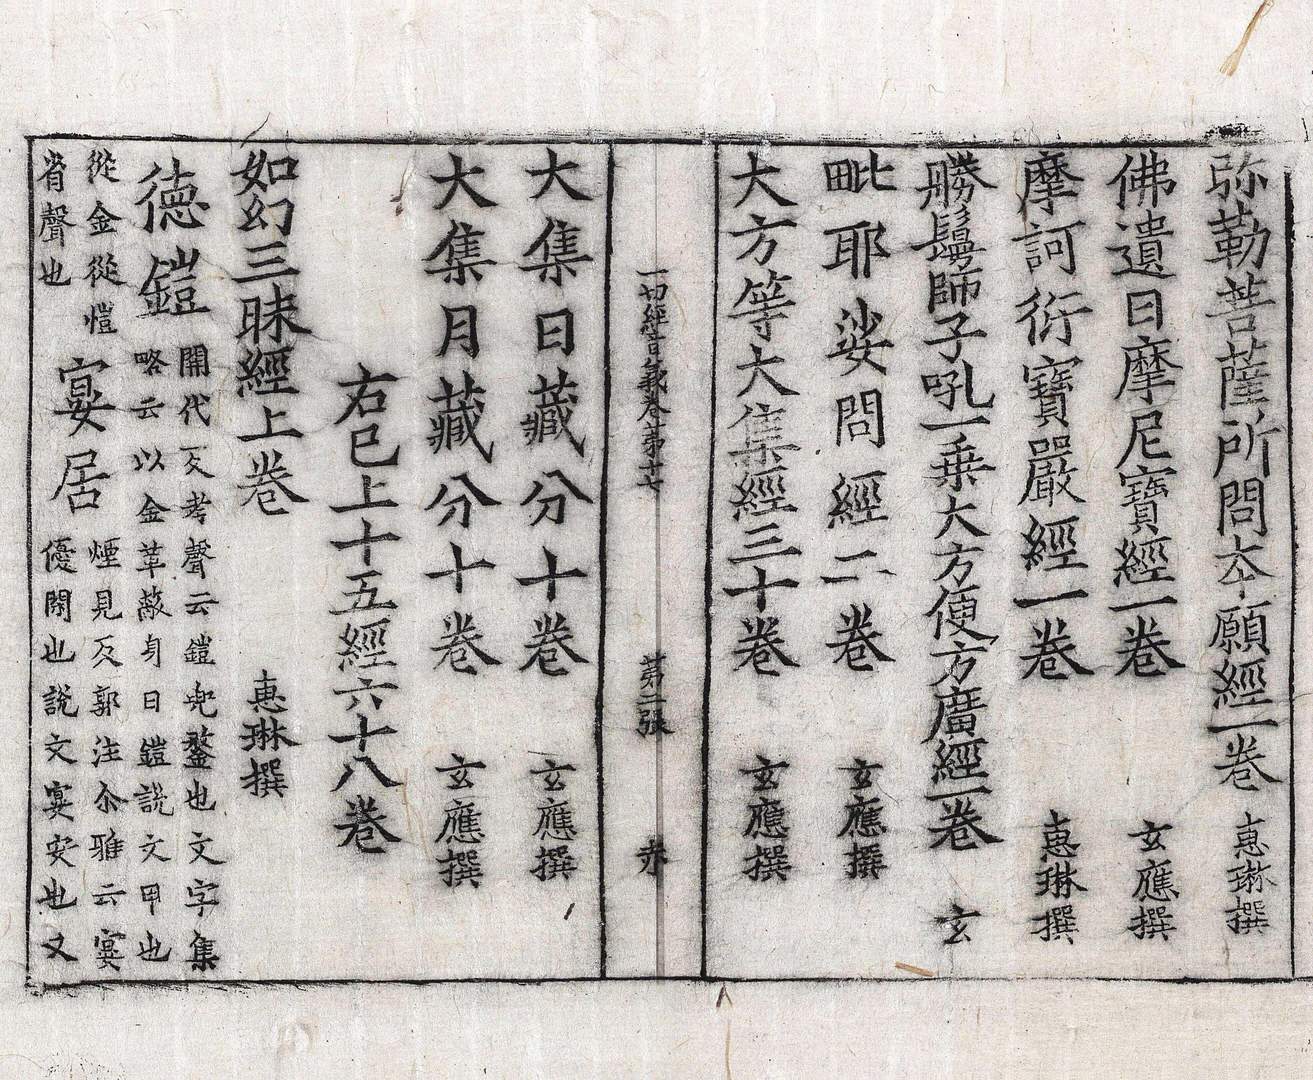 弥勒菩薩所問本願經一卷 惠琳撰
佛遺日摩尼寶經一卷 玄應撰
摩訶衍寶嚴經一卷 惠琳撰
勝鬘師子吼一乗大方便方廣經一卷 玄
毗耶娑問經二卷 玄應撰
大方等大集經三十卷 玄應撰
一切經音義卷苐十七 苐二張 赤
大集日藏分十卷 玄應撰
大集月藏分十卷 玄應撰
右已上十五經六十八卷
如幻三昧經上卷 惠琳撰
德鎧 開代反考聲云鎧兜鍪也文字集
略云以金革蔽身曰鎧說文甲也
從金從愷
省聲也
宴居 煙見反郭注尒雅云宴
優閑也說文宴安也又